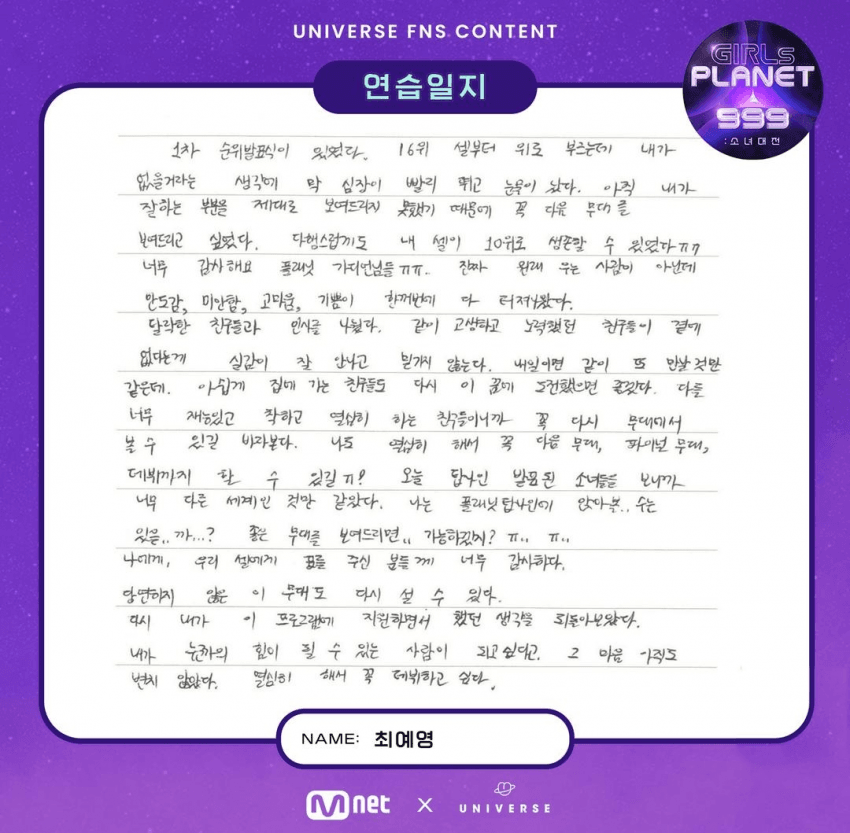 UNIVERSE FNS CONTENT
연습일지
GIRLS
PLANET
999
:소녀대전
1차 순위발표식이 있었다. 16위 셀부터 위로 부르는데 내가
없을거라는 생각에 막 심장이 빨리 뛰고 눈물이 났다. 아직 내가
잘하는 부분을 제대로 보여드리지 못했기 때문에 꼭 다음 무대를
보여드리고 싶었다. 다행스럽게도 내 셀이 10위로 생존할 수 있었다ㅠㅠ
너무 감사해요 플래닛 가디언님들 ㅠㅠ.. 진짜 원래 우는 사람이 아닌데
안도감, 미안함, 고마움, 기쁨이 한꺼번에 다 터져나왔다.
탈락한 친구들과 인사를 나눴다. 같이 고생하고 노력했던 친구들이 곁에
없다는게 실감이 잘 안나고 믿기지 않는다. 내일이면 같이 또 만날 것만
같은데. 아쉽게 집에 가는 친구들도 다시 이 꿈에 도전했으면 좋겠다. 다들
너무 재능있고 착하고 열심히 하는 친구들이니까 꼭 다시 무대에서
볼 수 있길 바라본다. 나도 열심히 해서 꼭 다음 무대, 파이널 무대,
데뷔까지 할 수 있길 ㅠ! 오늘 탑나인 발표된 소녀들을 보니까
너무 다른 세계인 것만 같았다. 나는 플래닛탑나인에 앉아볼.. 수는
있을.. 까...? 좋은 무대를 보여드리면.. 가능하겠지? ㅠ.. ㅠ..
나에게, 우리 셀에게 표를 주신 분들께 너무 감사하다.
당연하지 않은 이 무대도 다시 설 수 있다.
다시 내가 이 프로그램에 지원하면서 했던 생각을 되돌아보았다.
내가 누군가의 힘이 될 수 있는 사람이 되고싶다고. 그 마음 아직도
변치 않았다. 열심히 해서 꼭 데뷔하고 싶다.
NAME: 최예영
Mnet X UNIVERSE